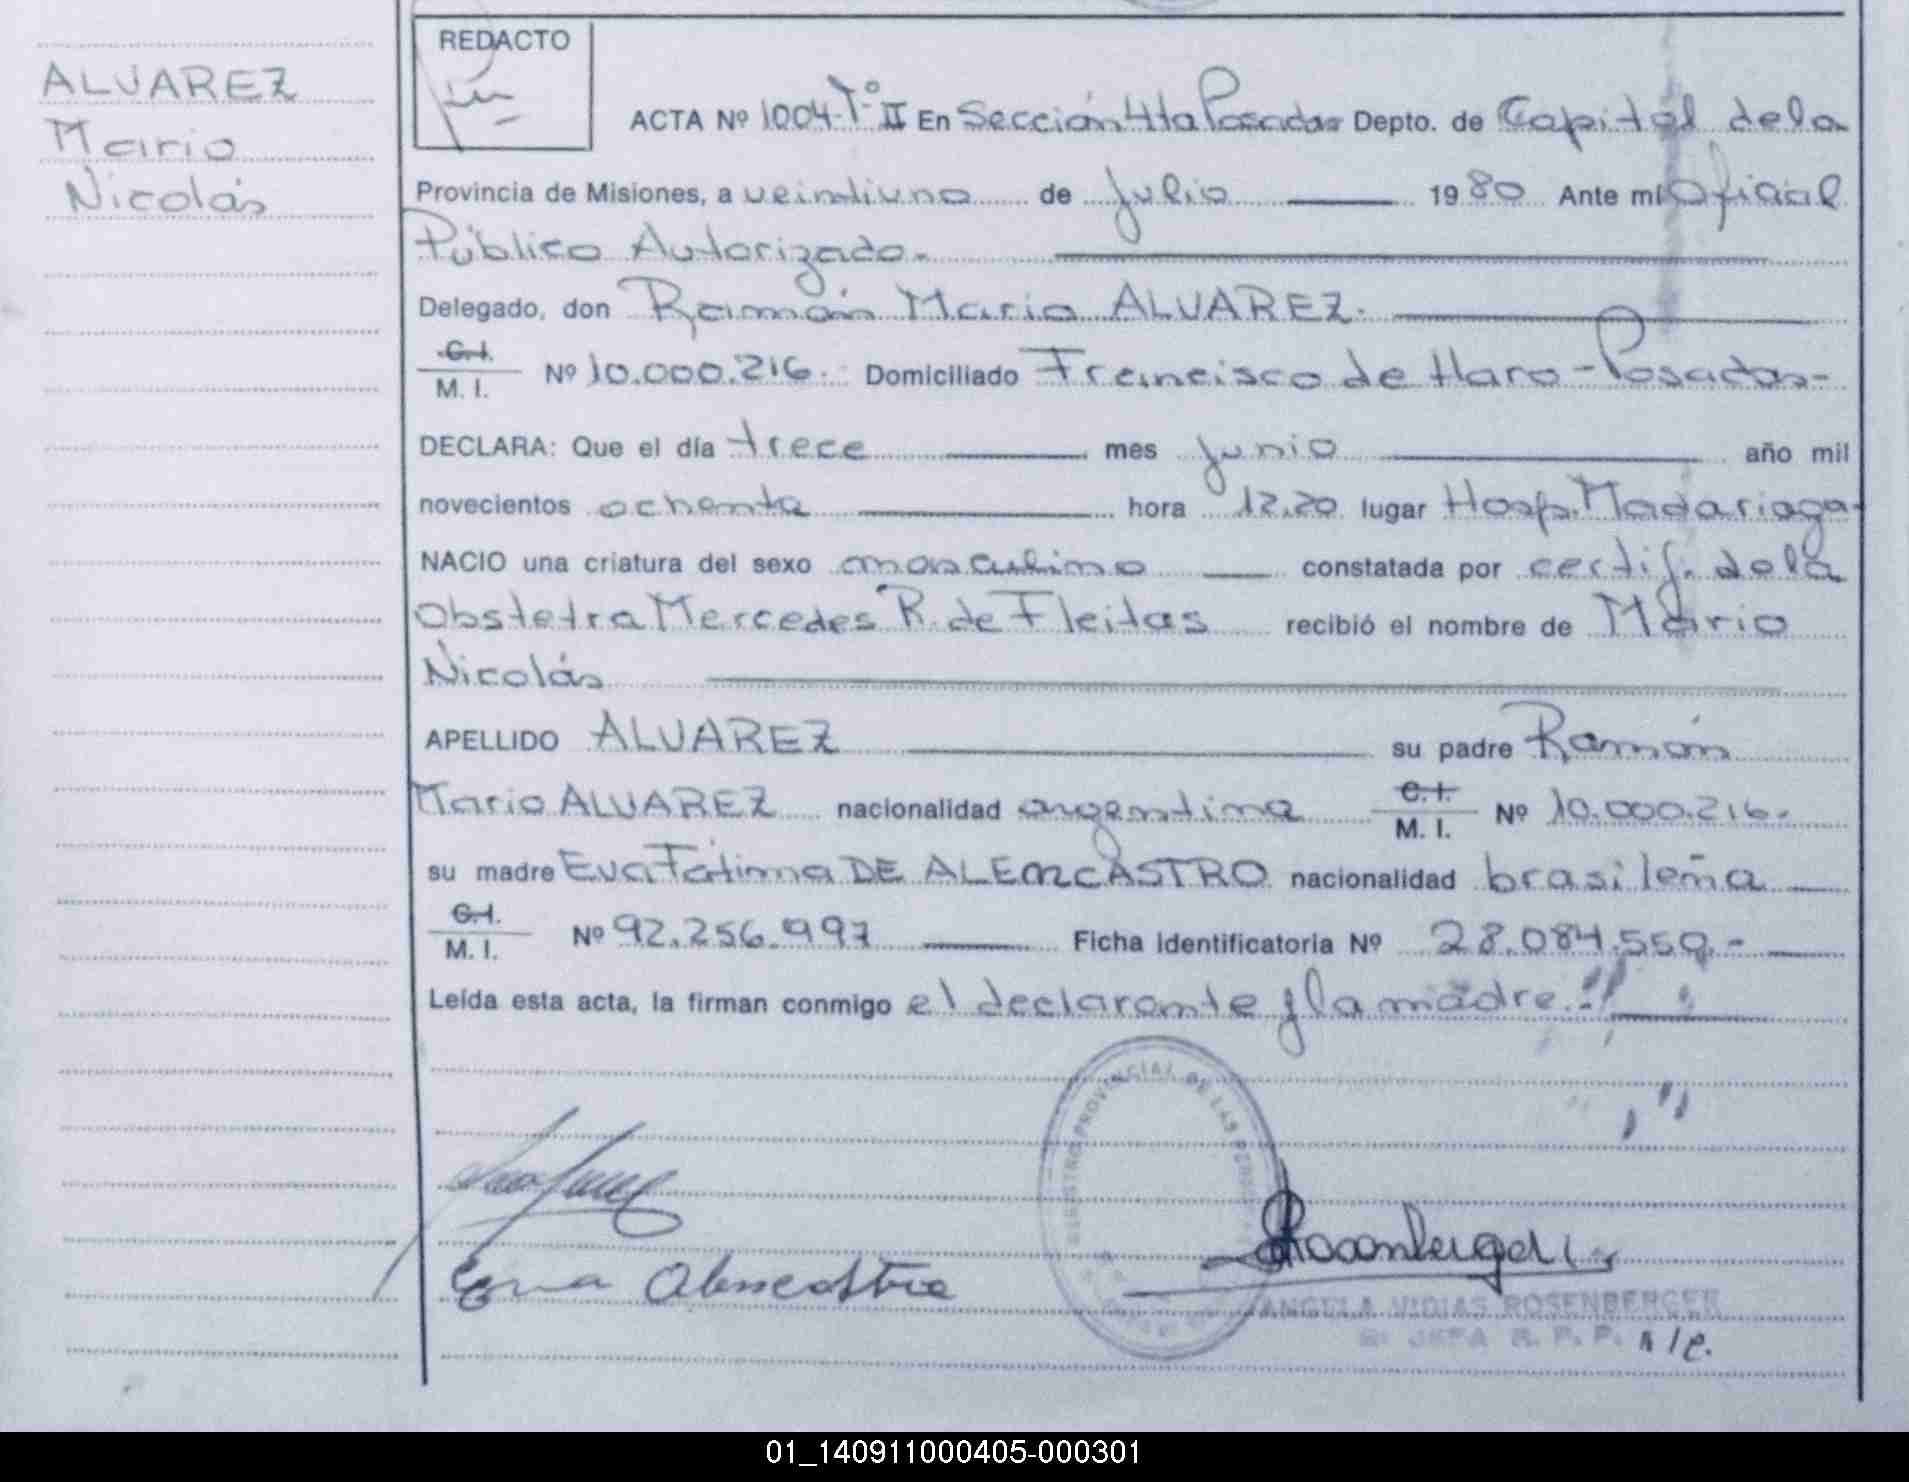 ALVAREZ
Mario
Nicolás
REDACTO
ACTA Nº 1004-Tº II En Sección 4ta Posadas Depto. de Capital de la
Provincia de Misiones, a veintiuno de julio 1980 Ante mí Oficial
Público Autorizado.
Delegado, don Ramón Mario ALVAREZ.
C.I.
M. I. Nº 10.000.216. Domiciliado Francisco de Haro - Posadas-
DECLARA: Que el día trece mes junio año mil
novecientos ochenta hora 12,20 lugar Hosp. Madariaga-
NACIO una criatura del sexo masculino constatada por certif. de la
Obstetra Mercedes R. de Fleitas recibió el nombre de Mario
Nicolás
APELLIDO ALVAREZ su padre Ramón
Mario ALVAREZ nacionalidad argentina C.I. M. I. Nº 10.000.216.
su madre Eva Fátima DE ALENCASTRO nacionalidad brasileña
C.I.
M. I. Nº 92.256.997 Ficha Identificatoria Nº 28.084.559.-
Leída esta acta, la firman conmigo el declarante y la madre.-
REGISTRO PROVINCIAL DE LAS PERSONAS
ANGELA VIDIAS ROSENBERGER
JEFA R. P. P. A/C.
01_140911000405-000301